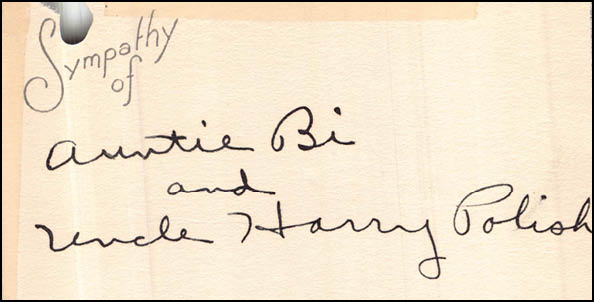 Sympathy
of
Auntie Bi
and
Uncle Harry Polish